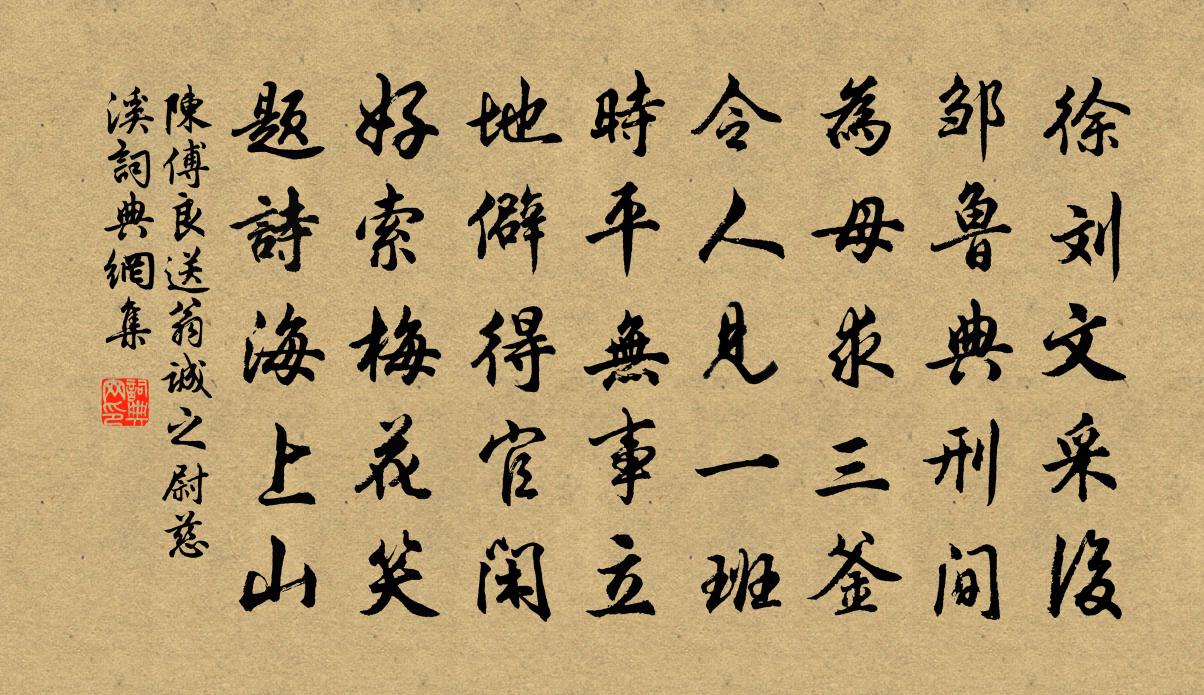 徐刘文采後
邹魯典刑间
為母求三釜
令人見一班
時平無事立
地僻得官闲
好索梅花笑
题詩海上山
陳傅良送翁诚之尉慈
溪詞典網集
詞典
网印